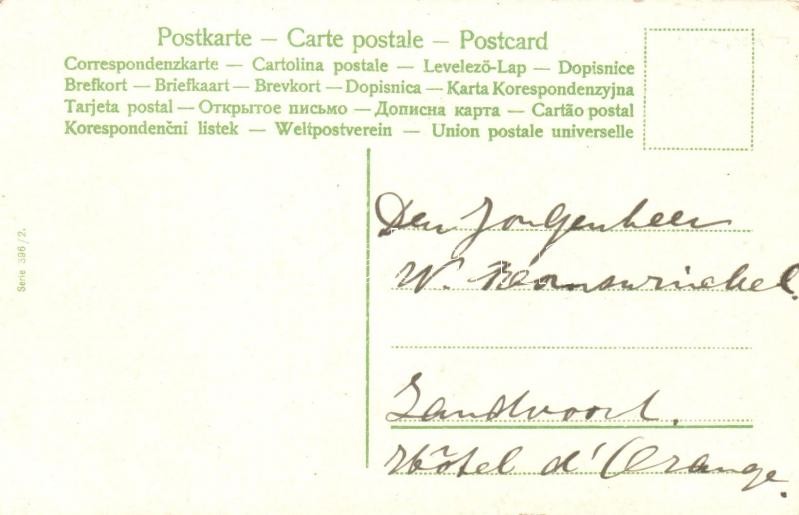 Postkarte – Carte postale – Postcard
Correspondenzkarte — Cartolina postale — Levelező-Lap — Dopisnice
Brefkort — Briefkaart — Brevkort — Dopisnica — Karta Korespondenzyjna
Tarjeta postal — Открытое письмо — Дописна карта — Cartão postal
Korespondenčni listek — Weltpostverein — Union postale universelle
Serie 396/2.
Den Jongenheer
W.
Zandvoort.
Hôtel d'Orange.